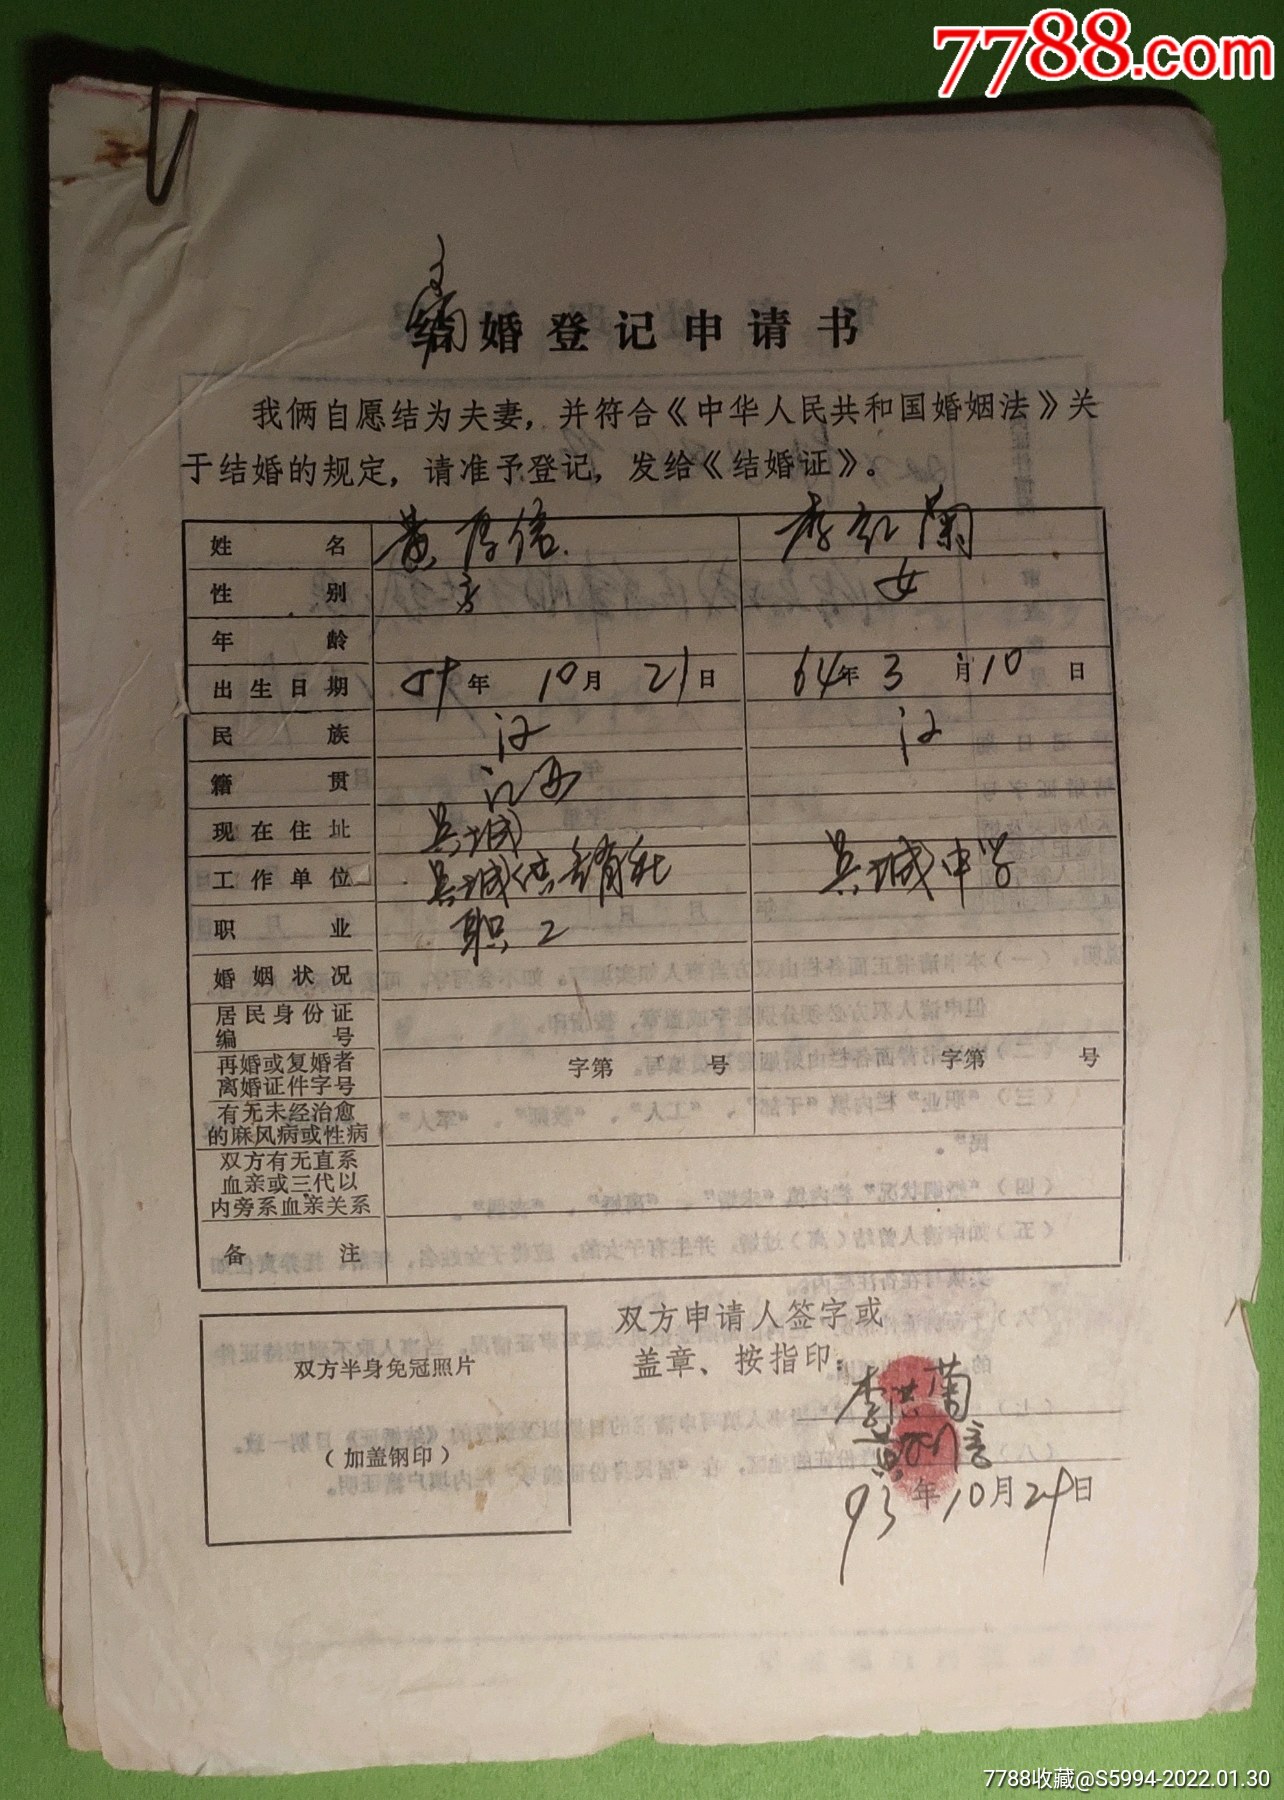 7788.com
婚登记申请书
我俩自愿结为夫妻，并符合《中华人民共和国婚姻法》关
于结婚的规定，请准予登记，发给《结婚证》。
姓名 黄
性别 男 女
年龄
出生日期 年 10月 21日 64年 3月 10日
民族 汉 汉
籍贯 江西
现在住址 吴城
工作单位 吴城供销社 吴城中学
职业 职工
婚姻状况
居民身份证
编号
再婚或复婚者
离婚证件字号 字第 号 字第 号
有无未经治愈
的麻风病或性病
双方有无直系
血亲或三代以
内旁系血亲关系
备注
双方申请人签字或
盖章、按指印：
双方半身免冠照片
（加盖钢印）
李洪
黄
93年10月29日
7788收藏@S5994-2022.01.30